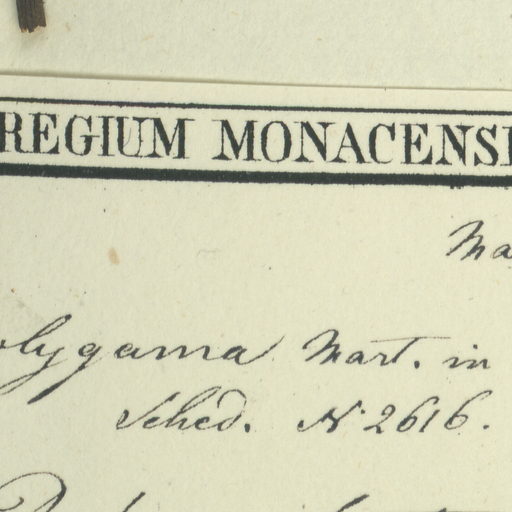 REGIUM MONACENSI
Ma
olygama Mart. in
Sched. N. 2616.